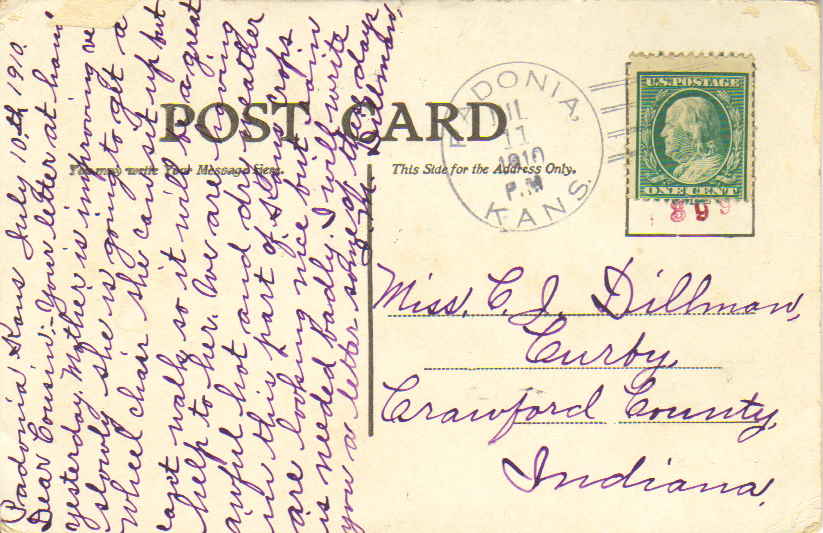 POST CARD
You may write Your Message Here.
This Side for the Address Only.
PADONIA,
11
1910
P.M
KANS.
U.S. POSTAGE
ONE CENT
Miss, C. J. Dillman,
Curby,
Crawford County,
Indiana.
Padonia Kans July 10th 1910.
Dear Cousin:- Your letter at hand
yesterday. Mother is improving ve
slowly she is going to get a
wheel chair she can sit up but
can't walk so it will be a great
help to her. We are having
awful hot and dry weather
in this part of Kans crops
are looking nice but rain
is needed badly. I will write
you a letter some of these days
Dillman,